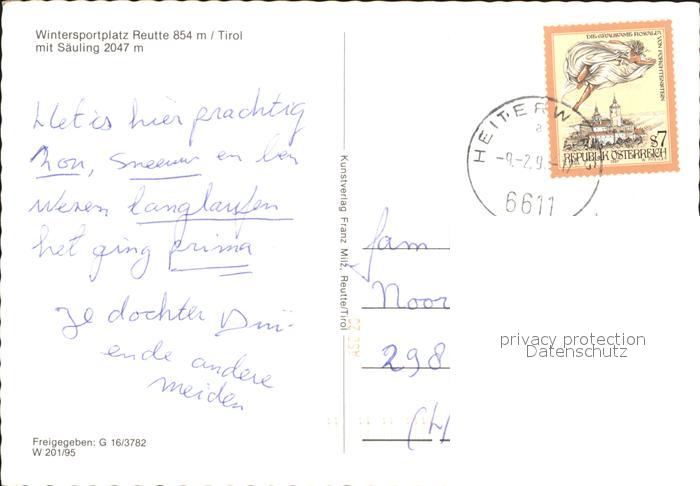 Wintersportplatz Reutte 854 m / Tirol
mit Säuling 2047 m
Het is hier prachtig
Zon, Sneeuw en ben
wezen langlaufen
het ging prima
Je dochter
ende andere
meiden
Freigegeben: G 16/3782
W 201/95
Kunstverlag Franz Milz, Reutte/Tirol
DIE GRAUSAME ROSALIA VON FORCHTENSTEIN
S7
REPUBLIK ÖSTERREICH
HEITERW
a
-9.-2.9
6611
fam
Noor
298
privacy protection
Datenschutz